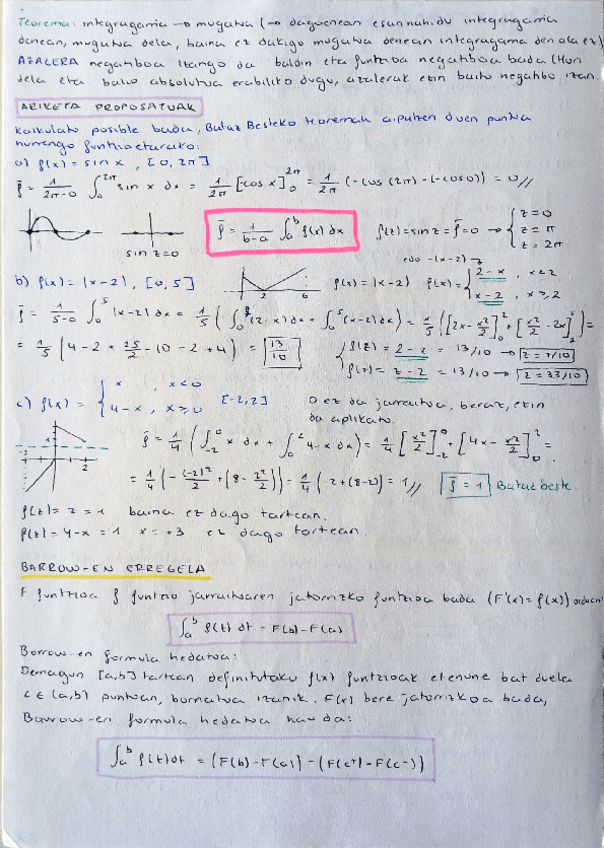 Teorema: integragarria → mugatua (→ dagoenean esan nahi du integragarria
denean, mugatua dela, baina ez dakigu mugatua denean integragarria den ala ez)
AZALERA negatiboa izango da baldin eta funtzioa negatiboa bada (Hori
dela eta balio absolutua erabiliko dugu, azalerak ezin baitu negatibo izan.
ARIKETA PROPOSATUAK
Kalkulatu posible bada, Bataz Besteko teoremak aipatzen duen puntua
hurrengo funtzioetarako:
a) f(x) = sin x , [0, 2π]
f̄ = 1/(2π-0) ∫₀^2π sin x dx = 1/2π [cos x]₀^2π = 1/2π (-cos (2π) - (-cos 0)) = 0//
sin z=0
f̄ = 1/(b-a) ∫ₐᵇ f(x) dx
f(z) = sin z = f̄ = 0 → { z = 0
z = π
z = 2π
edo -(x-2)
b) f(x) = |x-2| , [0, 5]
2 6
f(x) = |x-2| f(x) = { 2-x , x<2
x-2 , x≥2
f̄ = 1/(5-0) ∫₀⁵ |x-2| dx = 1/5 (∫₀² (2-x) dx + ∫₂⁵ (x-2) dx) = 1/5 ([2x - x²/2]₀² + [x²/2 - 2x]₂⁵) =
= 1/5 (4 - 2 + 25/2 - 10 - 2 + 4) = 13/10
{ f(z) = 2-z = 13/10 → z = 7/10
f(z) = z-2 = 13/10 → z = 33/10
c) f(x) = { x , x<0
4-x , x≥0
[-2,2]
0 ez da jarraitua, beraz, ezin
da aplikatu.
f̄ = 1/4 (∫₋₂⁰ x dx + ∫₀² 4-x dx) = 1/4 [x²/2]₋₂⁰ + [4x - x²/2]₀² =
= 1/4 (- (-2)²/2 + (8 - 2²/2)) = 1/4 (-2 + (8-2)) = 1 // f̄ = 1 Bataz beste.
f(z) = z = 1 baina ez dago tartean.
f(z) = 4-x = 1 x = +3 ez dago tartean.
BARROW-EN ERREGELA
F funtzioa f funtzio jarraituaren jatorrizko funtzioa bada (F'(x) = f(x)) orduan:
∫ₐᵇ f(t) dt = F(b) - F(a)
Barrow-en formula hedatua:
Demagun [a,b] tartean definitutako f(x) funtzioak etenune bat duela
c ∈ (a,b) puntuan, bornatua izanik. F(x) bere jatorrizkoa bada,
Barrow-en formula hedatua hau da:
∫ₐᵇ f(t) dt = (F(b) - F(a)) - (F(c⁺) - F(c⁻))